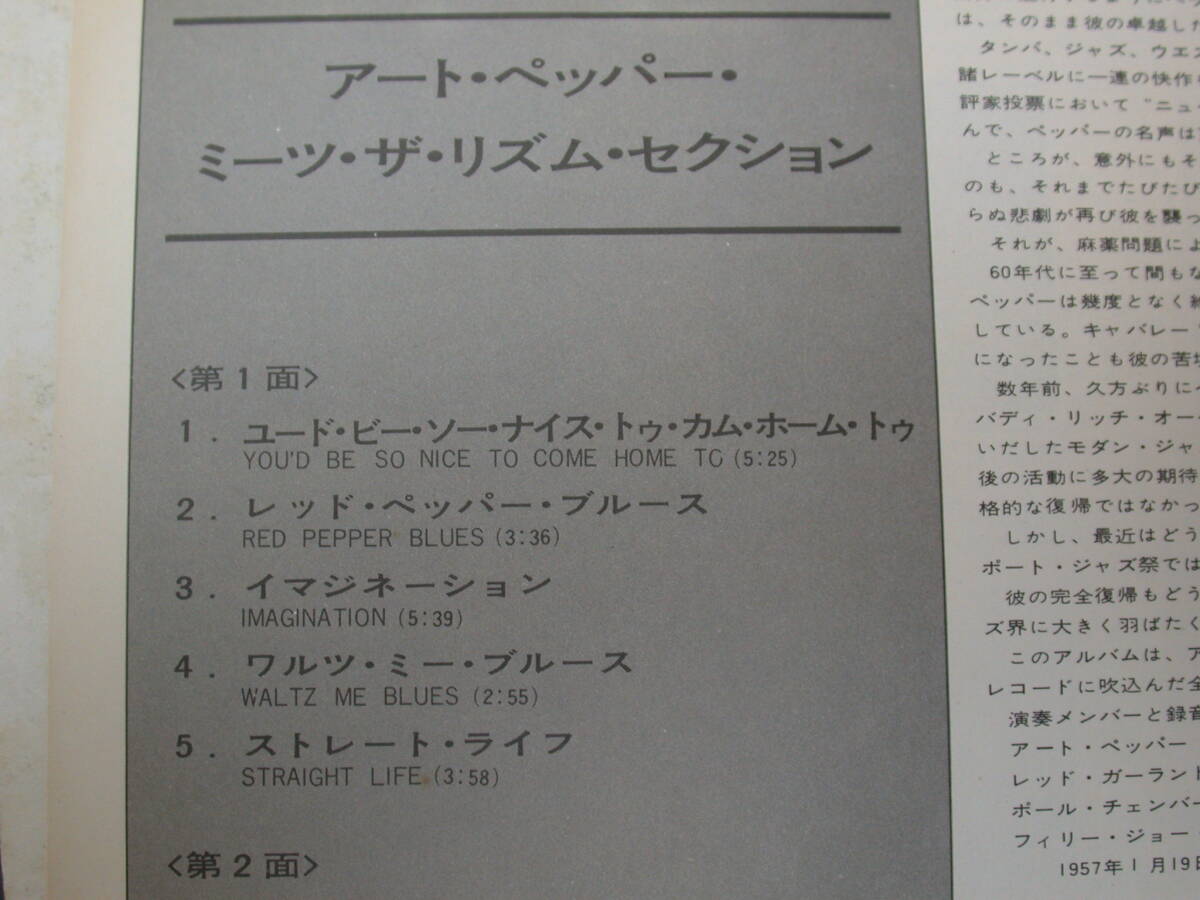 アート・ペッパー・
ミーツ・ザ・リズム・セクション
<第1面>
1. ユード・ビー・ソー・ナイス・トゥ・カム・ホーム・トゥ
YOU'D BE SO NICE TO COME HOME TO (5:25)
2. レッド・ペッパー・ブルース
RED PEPPER BLUES (3:36)
3. イマジネーション
IMAGINATION (5:39)
4. ワルツ・ミー・ブルース
WALTZ ME BLUES (2:55)
5. ストレート・ライフ
STRAIGHT LIFE (3:58)
<第2面>
は、そのまま彼の卓越した
タンパ、ジャズ、ウエス
諸レーベルに一連の快作
評家投票において"ニュ
んで、ペッパーの名声は
ところが、意外にもそ
のも、それまでたびたび
らぬ悲劇が再び彼を襲っ
それが、麻薬問題によ
60年代に至って間もな
ペッパーは幾度となく
している。キャバレー
になったことも彼の苦
数年前、久方ぶりに
バディ・リッチ・オー
いだしたモダン・ジャ
後の活動に多大の期待
格的な復帰ではなかっ
しかし、最近はどう
ポート・ジャズ祭では
彼の完全復帰もどう
ズ界に大きく羽ばたく
このアルバムは、ア
レコードに吹込んだ全
演奏メンバーと録音
アート・ペッパー
レッド・ガーラント
ポール・チェンバー
フィリー・ジョー
1957年1月19日